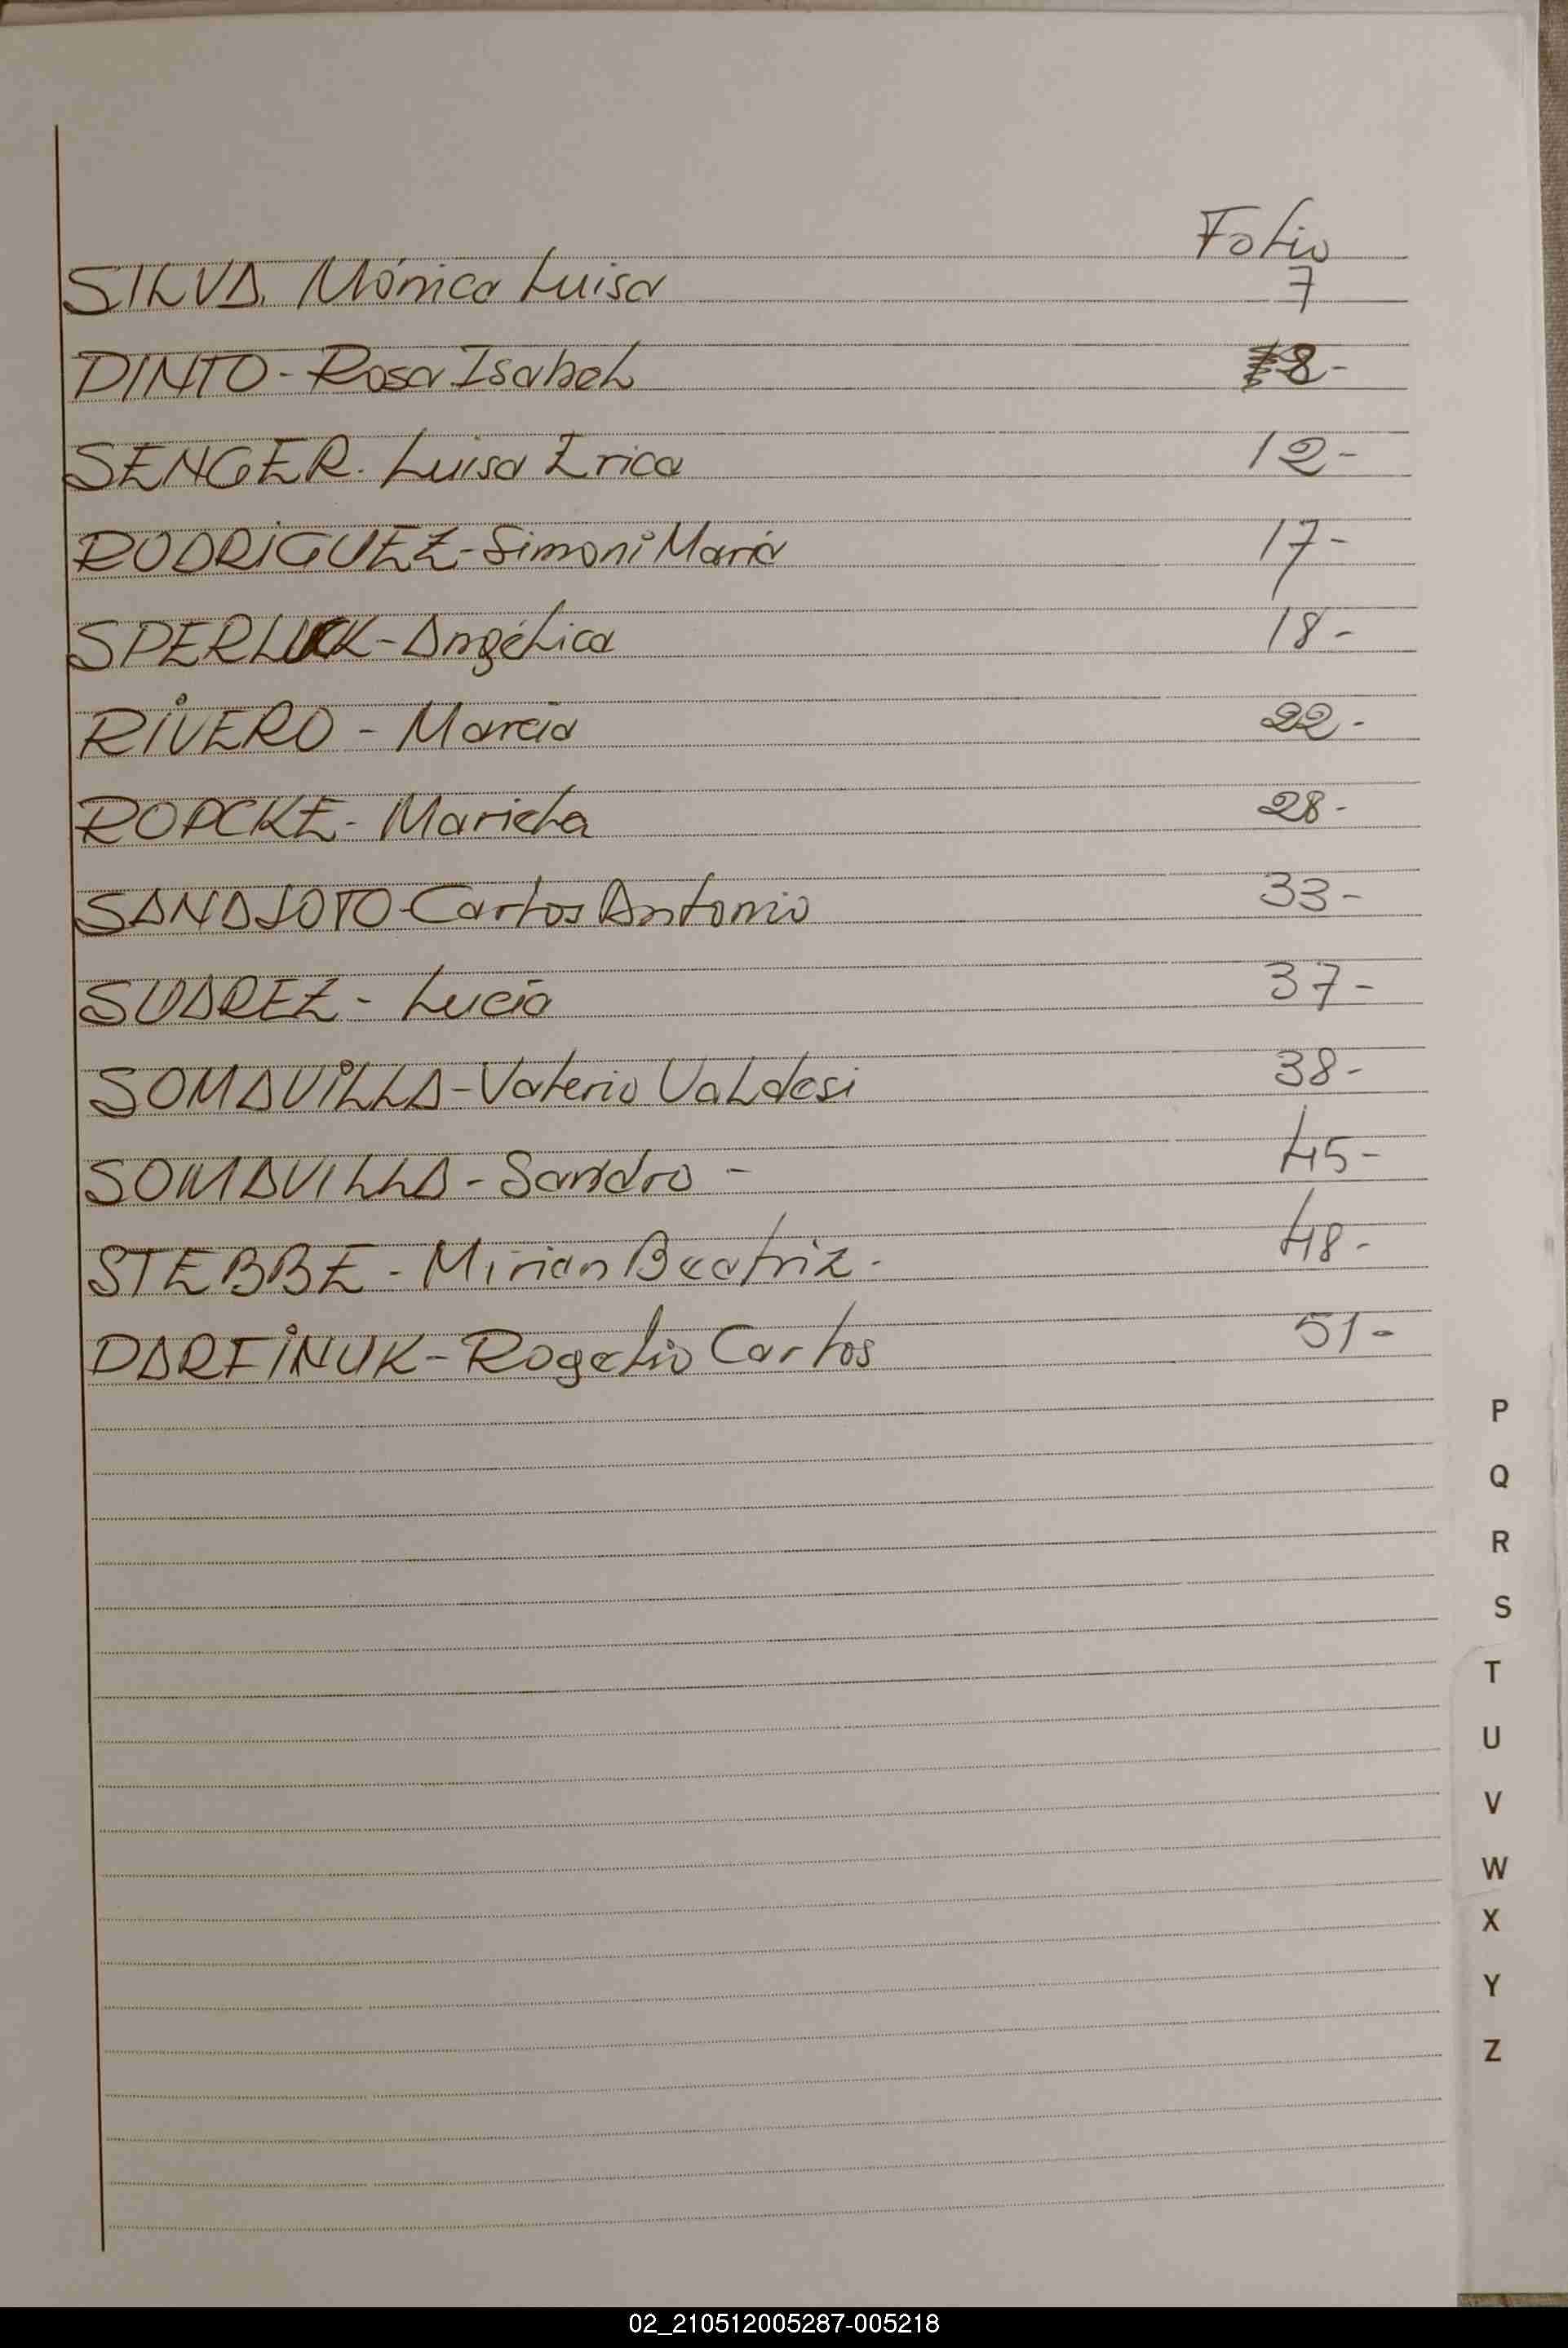 Folio
SILVA. Mónica Luisa 7
PINTO - Rosa Isabel 8-
SENGER. Luisa Erica 12-
RODRIGUEZ - Simoni María 17-
SPERLUK - Angélica 18-
RIVERO - Marcia 22-
ROPCKE - Mariela 28-
SANDSOTO - Carlos Antonio 33-
SUAREZ - Lucía 37-
SOMAVILLA - Valerio Valdesi 38-
SOMAVILLA - Sandro - 45-
STEBBE - Mirian Beatriz - 48-
PARFINUK - Rogelio Carlos 51-
P
Q
R
S
T
U
V
W
X
Y
Z
02_210512005287-005218